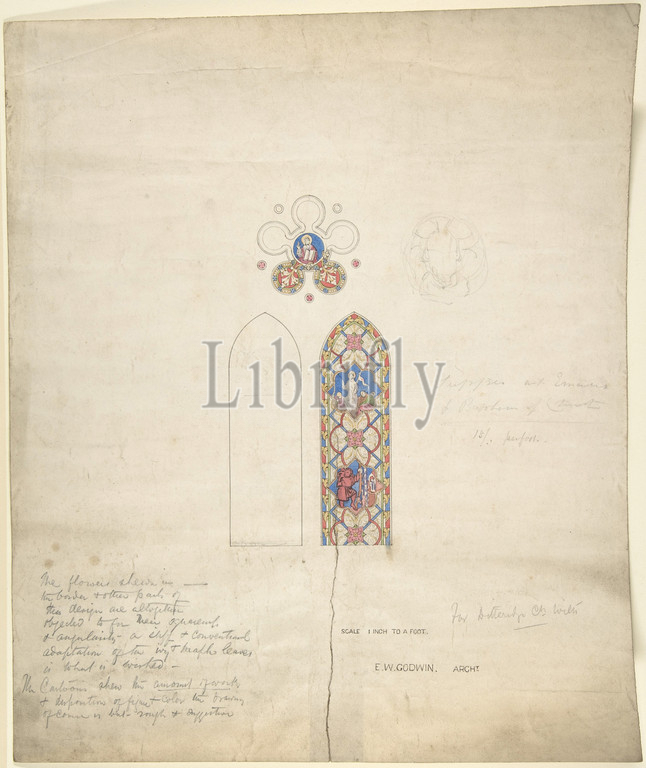 Librifly
Supper at Emmaus
12/. per foot.
The flowers shewn in —
the border & other parts of
this design are altogether
objected to for their squareness
& angularity - a stiff & conventional
adaptation of the ivy & maple leaves
is what is wanted. -
The Cartoons shew the amount of work
& disposition of figure & color the drawing
of course is but rough & suggestive
For Ditteridge Ch Wilts
SCALE 1 INCH TO A FOOT.
E.W.GODWIN. ARCHT.